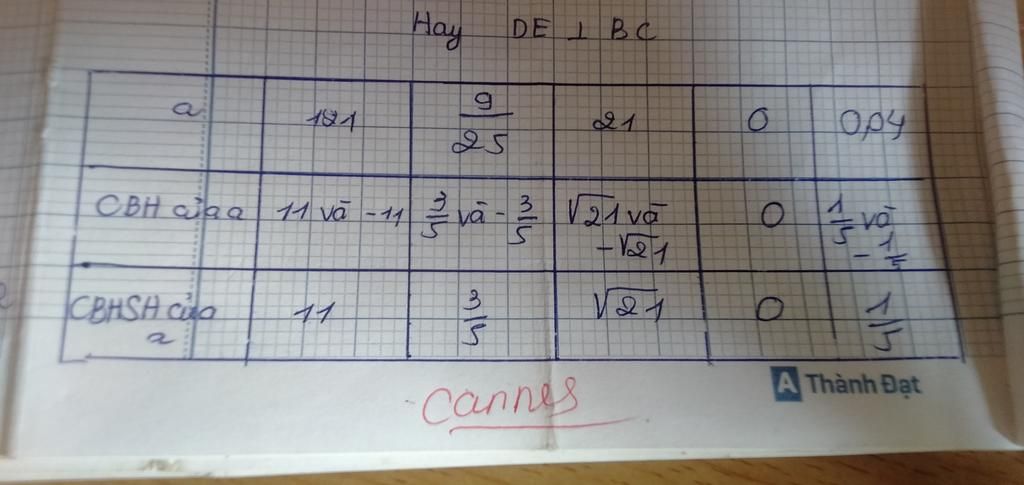 Hay DE ⊥ BC
a 121 9/25 21 0 0,04
CBH của a 11 và -11 3/5 và - 3/5 √21 và -√21 0 1/5 và - 1/5
CBHSH của a 11 3/5 √21 0 1/5
Cannes
A Thành Đạt